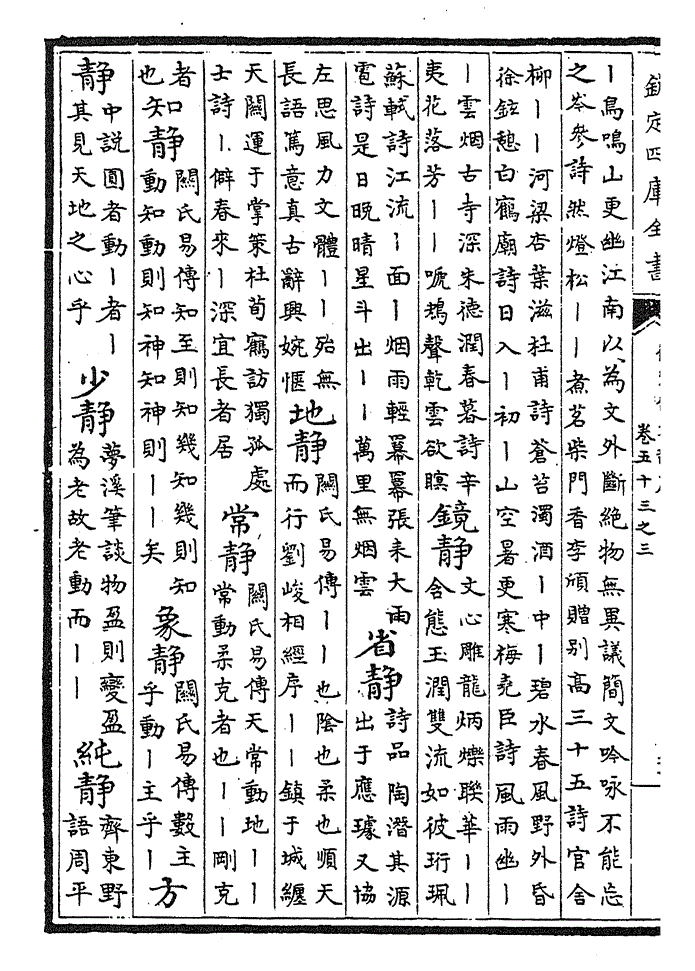 欽定四庫全書
卷五十三之三
丨鳥鳴山更幽江南以為文外斷絶物無異議簡文吟咏不能忘
之岑參詩然燈松丨丨煮茗柴門香李頎贈别高三十五詩官舍
柳丨丨河梁杏葉滋杜甫詩蒼苔濁酒丨中丨碧水春風野外昏
徐鉉憩白鶴廟詩日入丨初丨山空暑更寒梅堯臣詩風雨幽丨
丨雲烟古寺深朱德潤春暮詩辛
夷花落芳丨丨唬鵝聲乾雲欲暝
鏡静
文心雕龍炳爍聯華丨丨
含態玉潤雙流如彼珩珮
蘇軾詩江流丨面丨烟雨輕羃羃張耒大雨
雹詩是日晩晴星斗出丨丨萬里無烟雲
省静
詩品陶潛其源
出于應璩又協
左思風力文體丨丨殆無
長語篤意真古辭興婉愜
地静
關氏易傳丨丨也陰也柔也順天
而行劉峻相經序丨丨鎮于城纏
天關運于掌策杜荀鶴訪獨孤處
士詩丨僻春來丨深宜長者居
常静
關氏易傳天常動地丨丨
常動柔克者也丨丨剛克
者
也
知静
關氏易傳知至則知幾知幾則知
動知動則知神知神則丨丨矣
象静
關氏易傳數主
乎動丨主乎丨
方
静
中說圓者動丨者丨
其見天地之心乎
少静
夢溪筆談物盈則變盈
為老故老動而丨丨
純静
齊東野
語周平